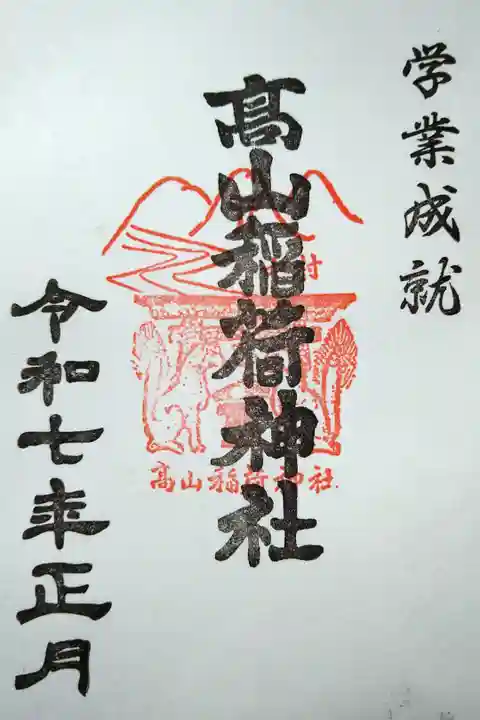 学業成就
髙山稲荷神社
村
髙山稲荷神社
令和七年正月